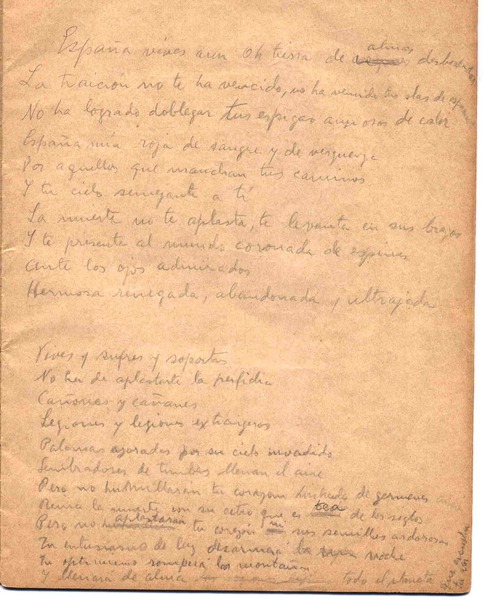 España vives aun Oh tierra de almas desbordadas
La traición no te ha vencido, no ha vencido tus olas de espanto
No ha logrado doblegar tus espigas ansiosas de calor
España mía roja de sangre y de vergüenza
Por aquellos que manchan tus caminos
Y tu cielo semejante a ti
La muerte no te aplasta, te levanta en sus brazos
Y te presenta al mundo coronada de espinas
Ante los ojos admirados
Hermosa renegada, abandonada y ultrajada
Vives y sufres y soportas
No ha de aplastarte la perfidia
Cañones y cañones
Legiones y legiones extranjeros
Palomas azoradas por su cielo invadido
Sembradores de tumbas llenan el aire
Pero no humillarán tu corazón hinchado de germenes
Reina la muerte con su cetro que es tea de los siglos
Pero no aplastarán tu corazón ni sus semillas ardorosas
Tu entusiasmo de luz desarma la noche
Tu optimismo romperá las montañas
Y llenará de alma todo el planeta